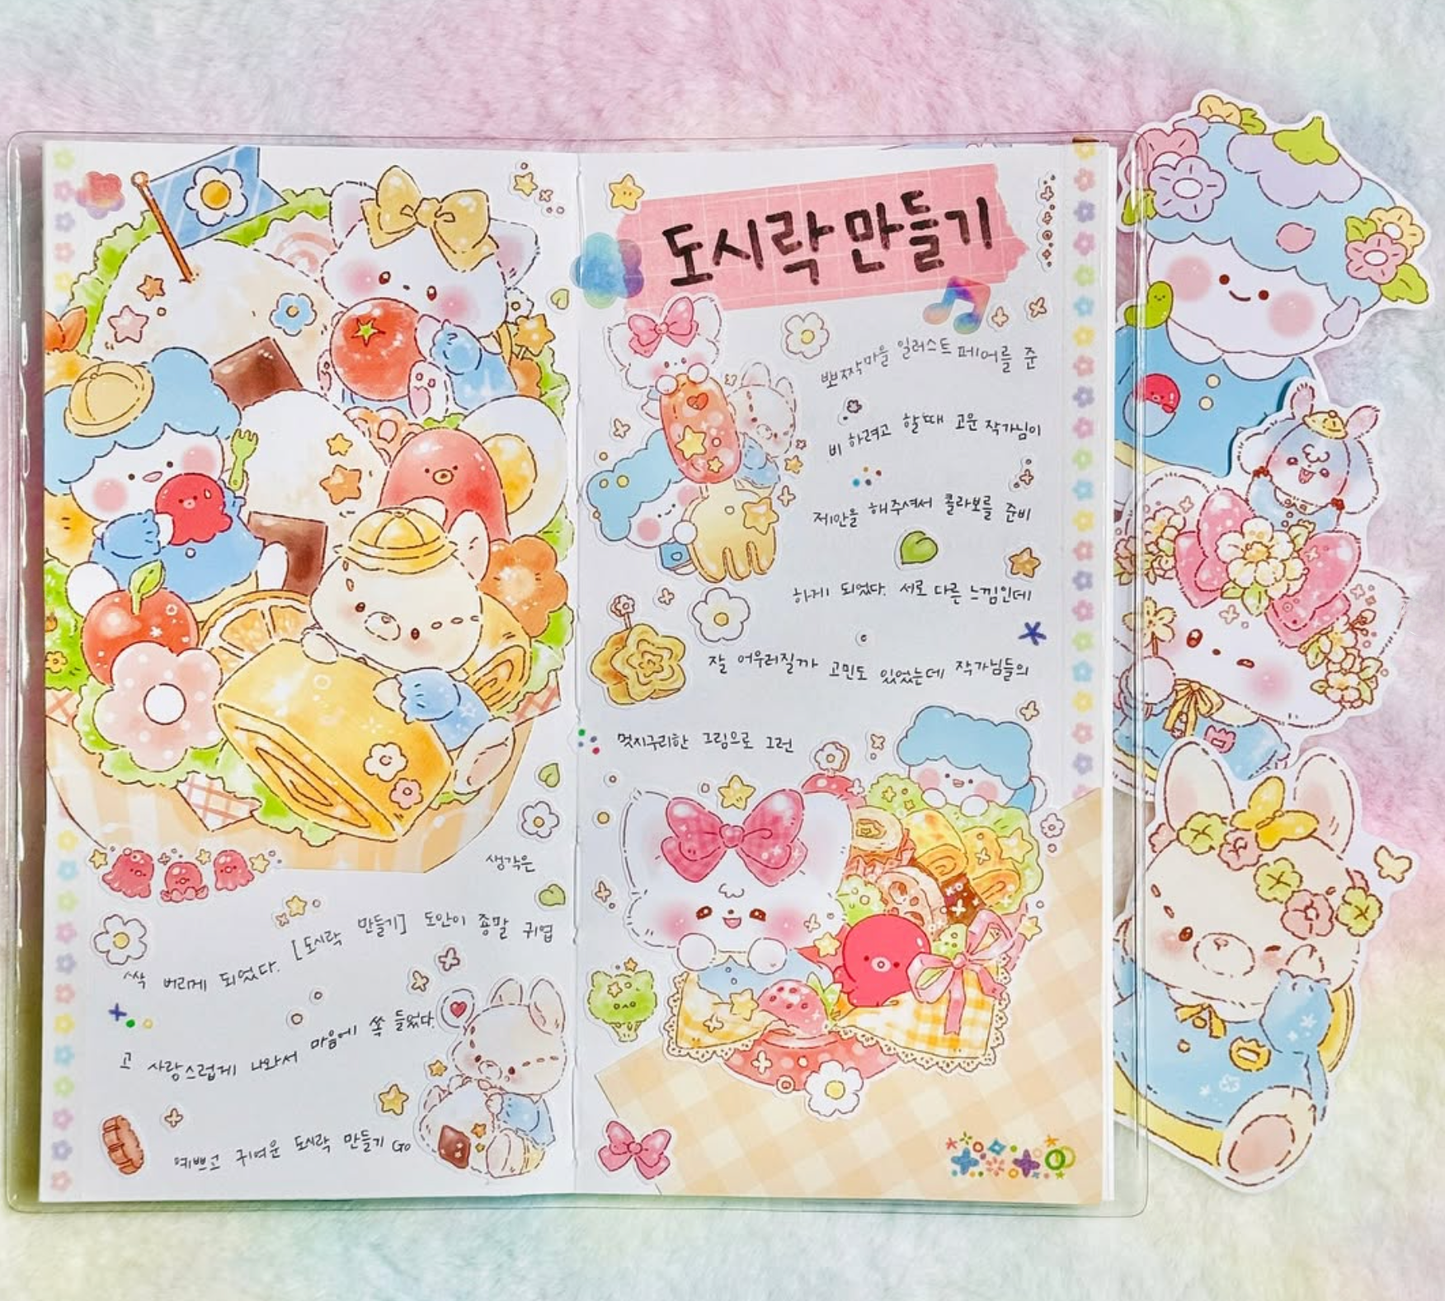 도시락 만들기
뽀짝마을 일러스트 페어를 준
비 하려고 할때 고운 작가님이
제안을 해주셔서 콜라보를 준비
하게 되었다. 서로 다른 느낌인데
잘 어우러질까 고민도 있었는데 작가님들의
멋지구리한 그림으로 그런
생각은
싹 버리게 되었다. [도시락 만들기] 도안이 죵말 귀엽
고 사랑스럽게 나와서 마음에 쏙 들었다.
예쁘고 귀여운 도시락 만들기 Go